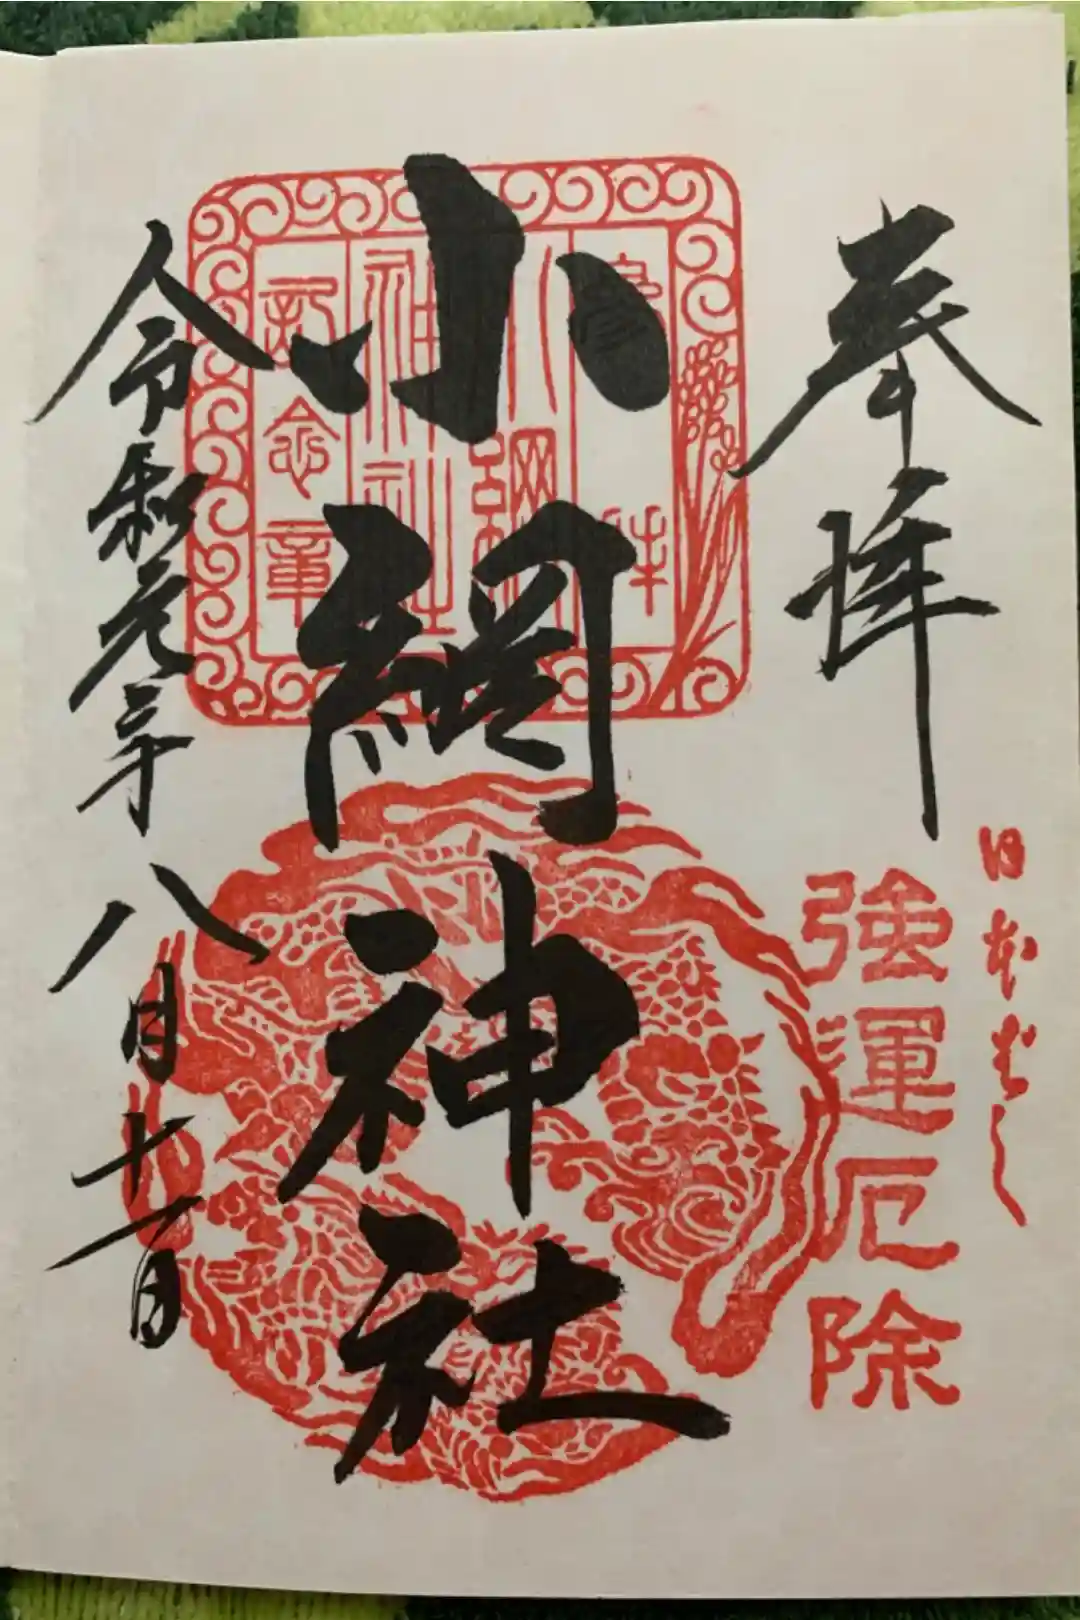 奉拝
日本ばし
強運厄除
小網神社
小網
神社
記念章
令和元年八月十一日